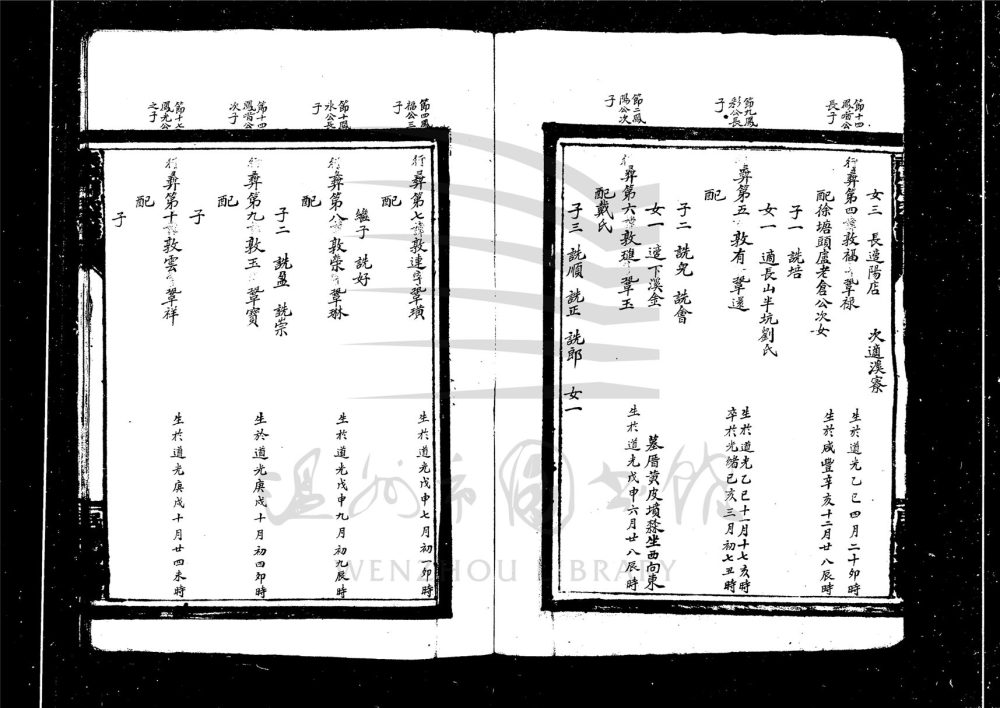 女三 長適陽店 次適漢寮
節十四
鳳喈公
長子
行彛第四諱敦福字鞏禄 生於道光乙巳四月二十卯時
配徐塘頭盧老倉公次女 生於咸豐辛亥十二月廿八辰時
子一 詵培
女一 適長山半坑劉氏
節九鳳
彩公長
子
彛第五 敦有 鞏遠 生於道光乙巳十一月十七亥時
卒於光緒己亥三月初七丑時
配
子二 詵允 詵會
女一 適下溪金 墓厝黃皮墳 坐西向東
節二鳳
陽公次
子
行彛第六諱敦璡 鞏玉 生於道光戊申六月廿八辰時
配戴氏
子三 詵順 詵正 詵郎 女一
節四鳳
福公三
子
行彛第七諱敦連字鞏瑱 生於道光戊申七月初一卯時
配
繼子 詵好
節十鳳
水公長
子
行彛第八諱敦榮 鞏琳 生於道光戊申九月初九辰時
配
子二 詵盈 詵崇
節十四
鳳喈公
次子
行彛第九 敦玉 鞏寶 生於道光庚戌十月初四卯時
配
子
節十七
鳳光公
之子
行彛第十諱敦雲 鞏祥 生於道光庚戌十月廿四未時
配
子
温州市圖書館
WENZHOU LIBRARY